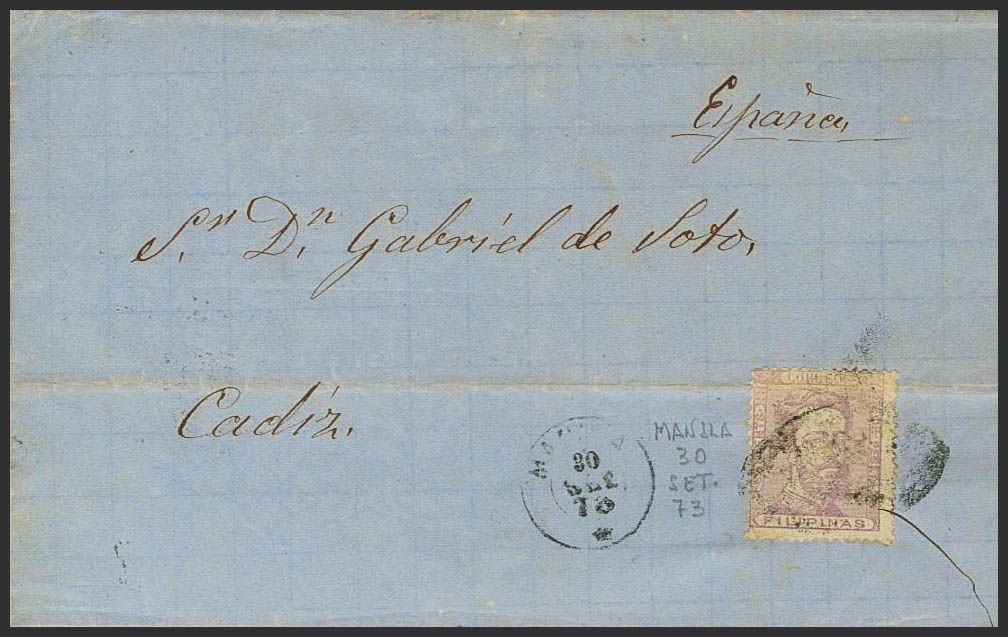 España,
Sr. Dn. Gabriel de Soto,
Cadiz.
MANILA
30
SET.
73
30
SET
CORREOS
FILIPINAS